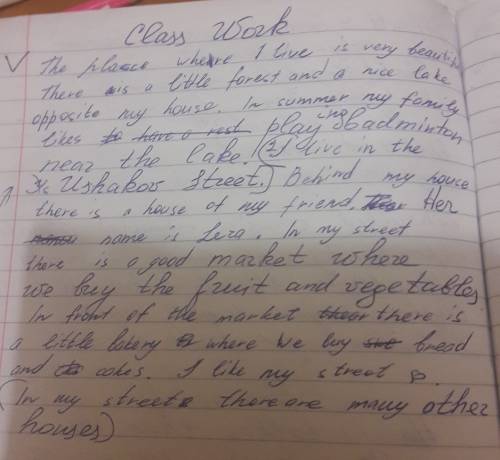 Class Work
The place where I live is very beautiful
There is a little forest and a nice lake
opposite my house. In summer my family
likes playing badminton
near the lake. (2 I live in the
Ushakov Street.) Behind my house
there is a house of my friend. Her
name is Leza. In my street
there is a good market where
we buy the fruit and vegetables.
In front of the market there is
a little bakery where we buy bread
and cakes. I like my street
(In my street there are many other
houses)